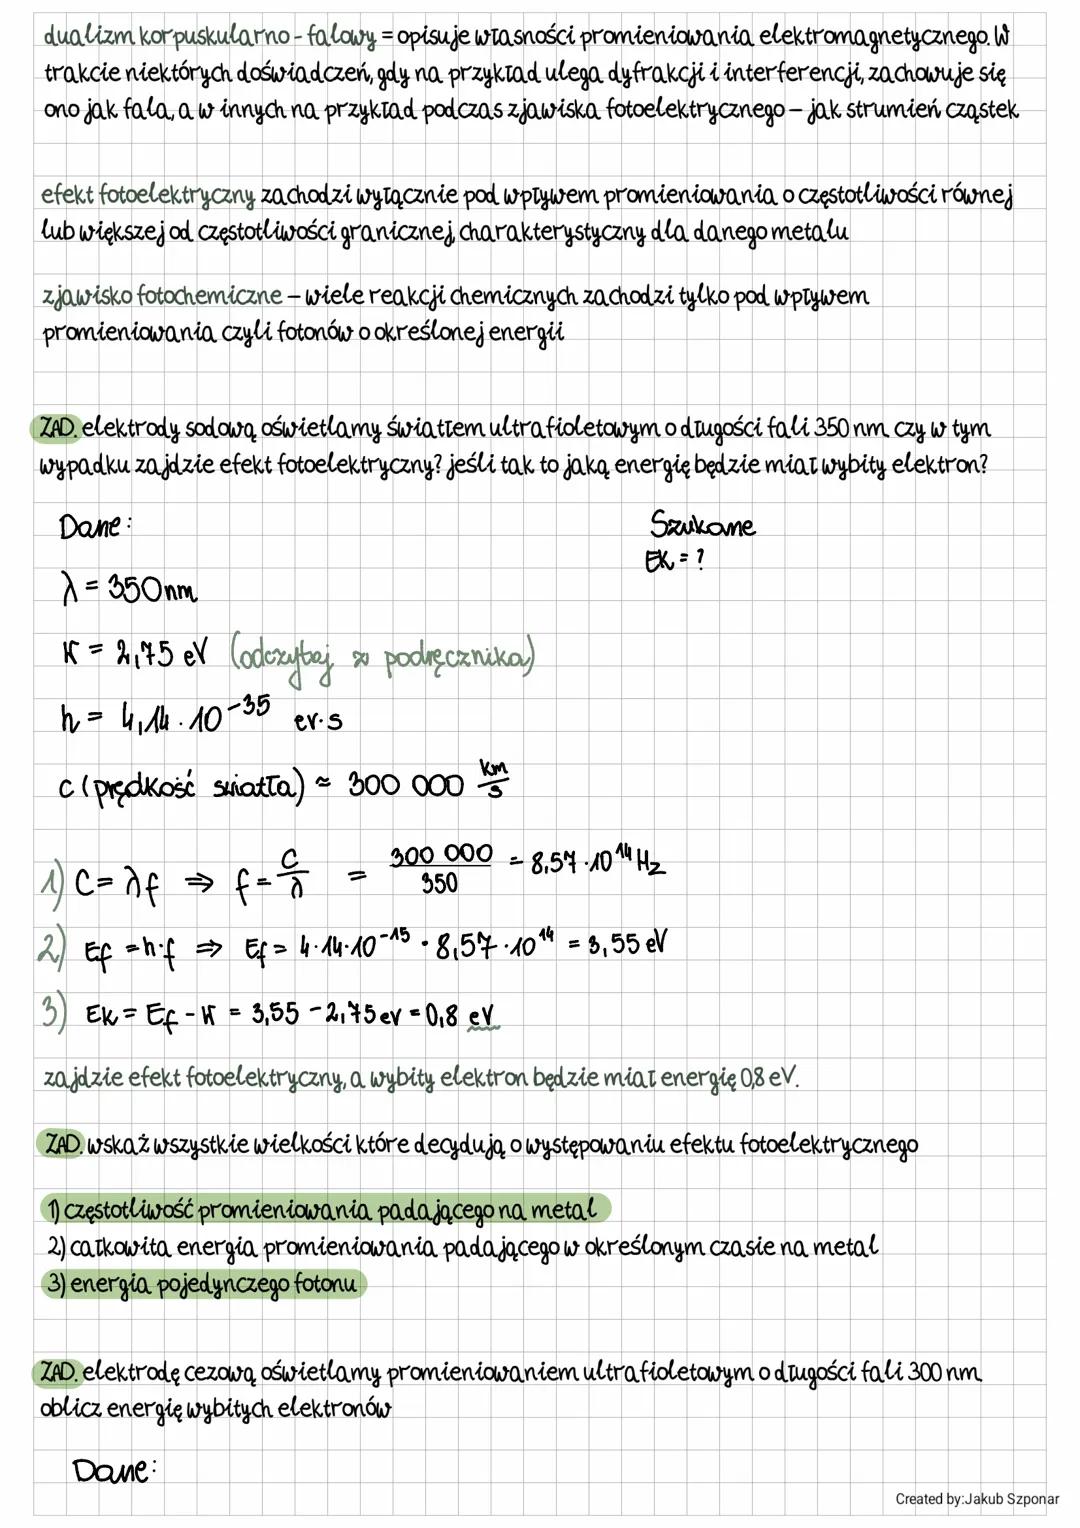 dualizm korpuskularno - falowy = opisuje własności promieniowania elektromagnetycznego. W
trakcie niektórych doświadczeń, gdy na przykład ulega dyfrakcji i interferencji, zachowuje się
ono jak fala, a w innych na przykład podczas zjawiska fotoelektrycznego – jak strumień cząstek
efekt fotoelektryczny zachodzi wyłącznie pod wpływem promieniowania o częstotliwości równej
lub większej od częstotliwości granicznej, charakterystyczny dla danego metalu
zjawisko fotochemiczne – wiele reakcji chemicznych zachodzi tylko pod wpływem
promieniowania czyli fotonów o określonej energii
ZAD. elektrody sodową oświetlamy światłem ultrafioletowym o długości fali 350 nm. czy w tym
wypadku zajdzie efekt fotoelektryczny? jeśli tak to jaką energię będzie miał wybity elektron?
Dane: Szukane
EK = ?
λ = 350nm
W = 2,75 eV (odczytaj z podręcznika)
h = 4,14 · 10^-35 ev·s
c (prędkość światła) ≈ 300 000 km/s
1) C = λf ⇒ f = C/λ = 300 000/350 = 8,57 · 10^14 Hz
2) Ef = h·f ⇒ Ef = 4·14·10^-15 · 8,57 · 10^14 = 3,55 eV
3) Ek = Ef - W = 3,55 - 2,75 ev = 0,8 eV
zajdzie efekt fotoelektryczny, a wybity elektron będzie miał energię 0,8 eV.
ZAD. wskaż wszystkie wielkości które decydują o występowaniu efektu fotoelektrycznego
1) częstotliwość promieniowania padającego na metal
2) całkowita energia promieniowania padającego w określonym czasie na metal
3) energia pojedynczego fotonu
ZAD. elektrodę cezową oświetlamy promieniowaniem ultrafioletowym o długości fali 300 nm.
oblicz energię wybitych elektronów
Dane:
Created by:Jakub Szponar